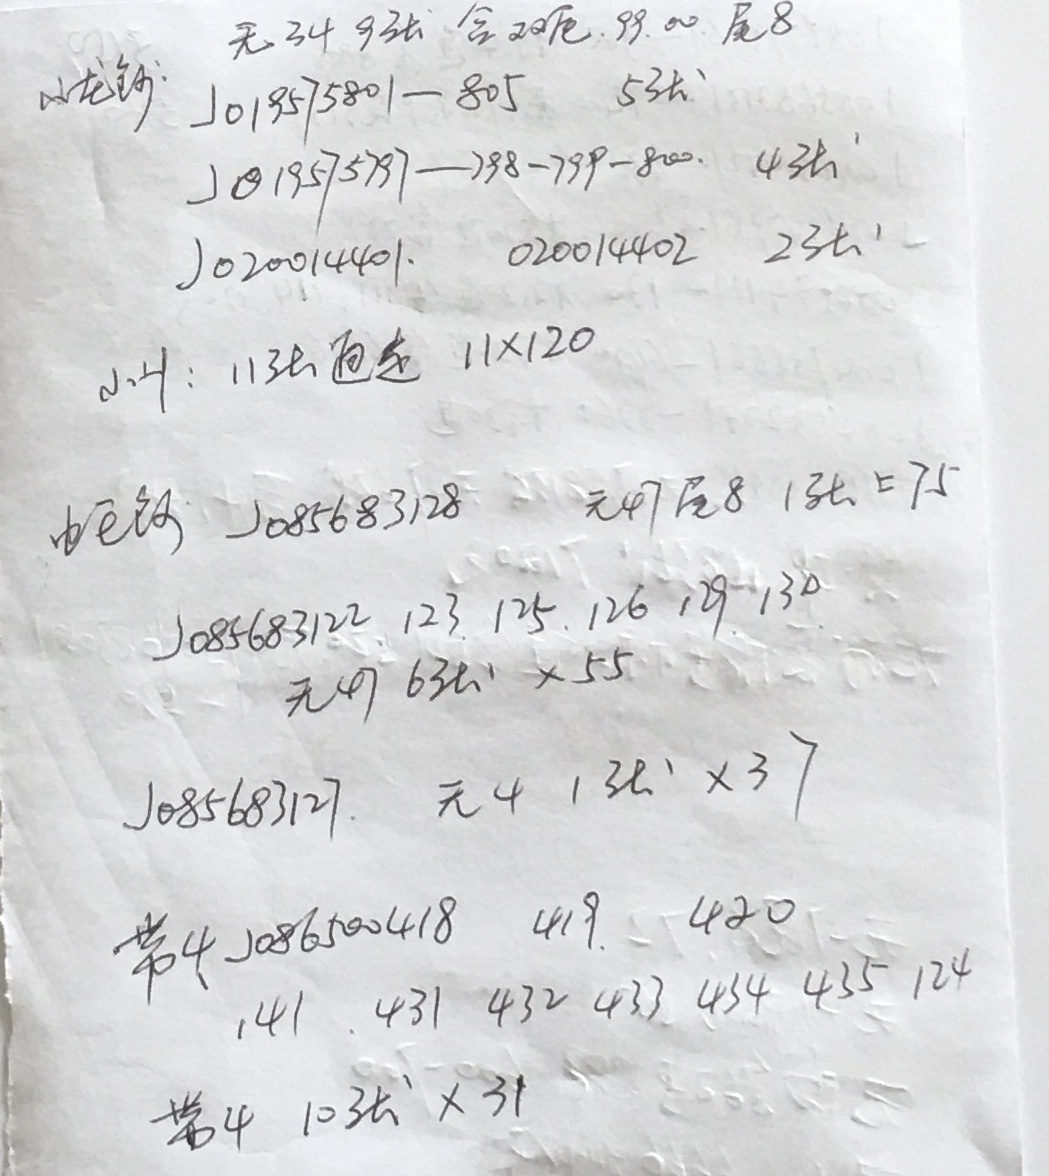 无34 9张 含双尾.99.00 尾8
小龙钞: J019575801—805 5张
J019575797—798-799-800. 4张
J020014401. 020014402 23张
小计: 11张 通走 11×120
J085683128 无47尾8 1张=75
J085683122 123. 125. 126 129 130
无47 6张 ×55
J085683127. 无4 1张 ×37
带4 J086500418 419. 420
141 . 431 432 433 434 435 124
带4 10张 ×31